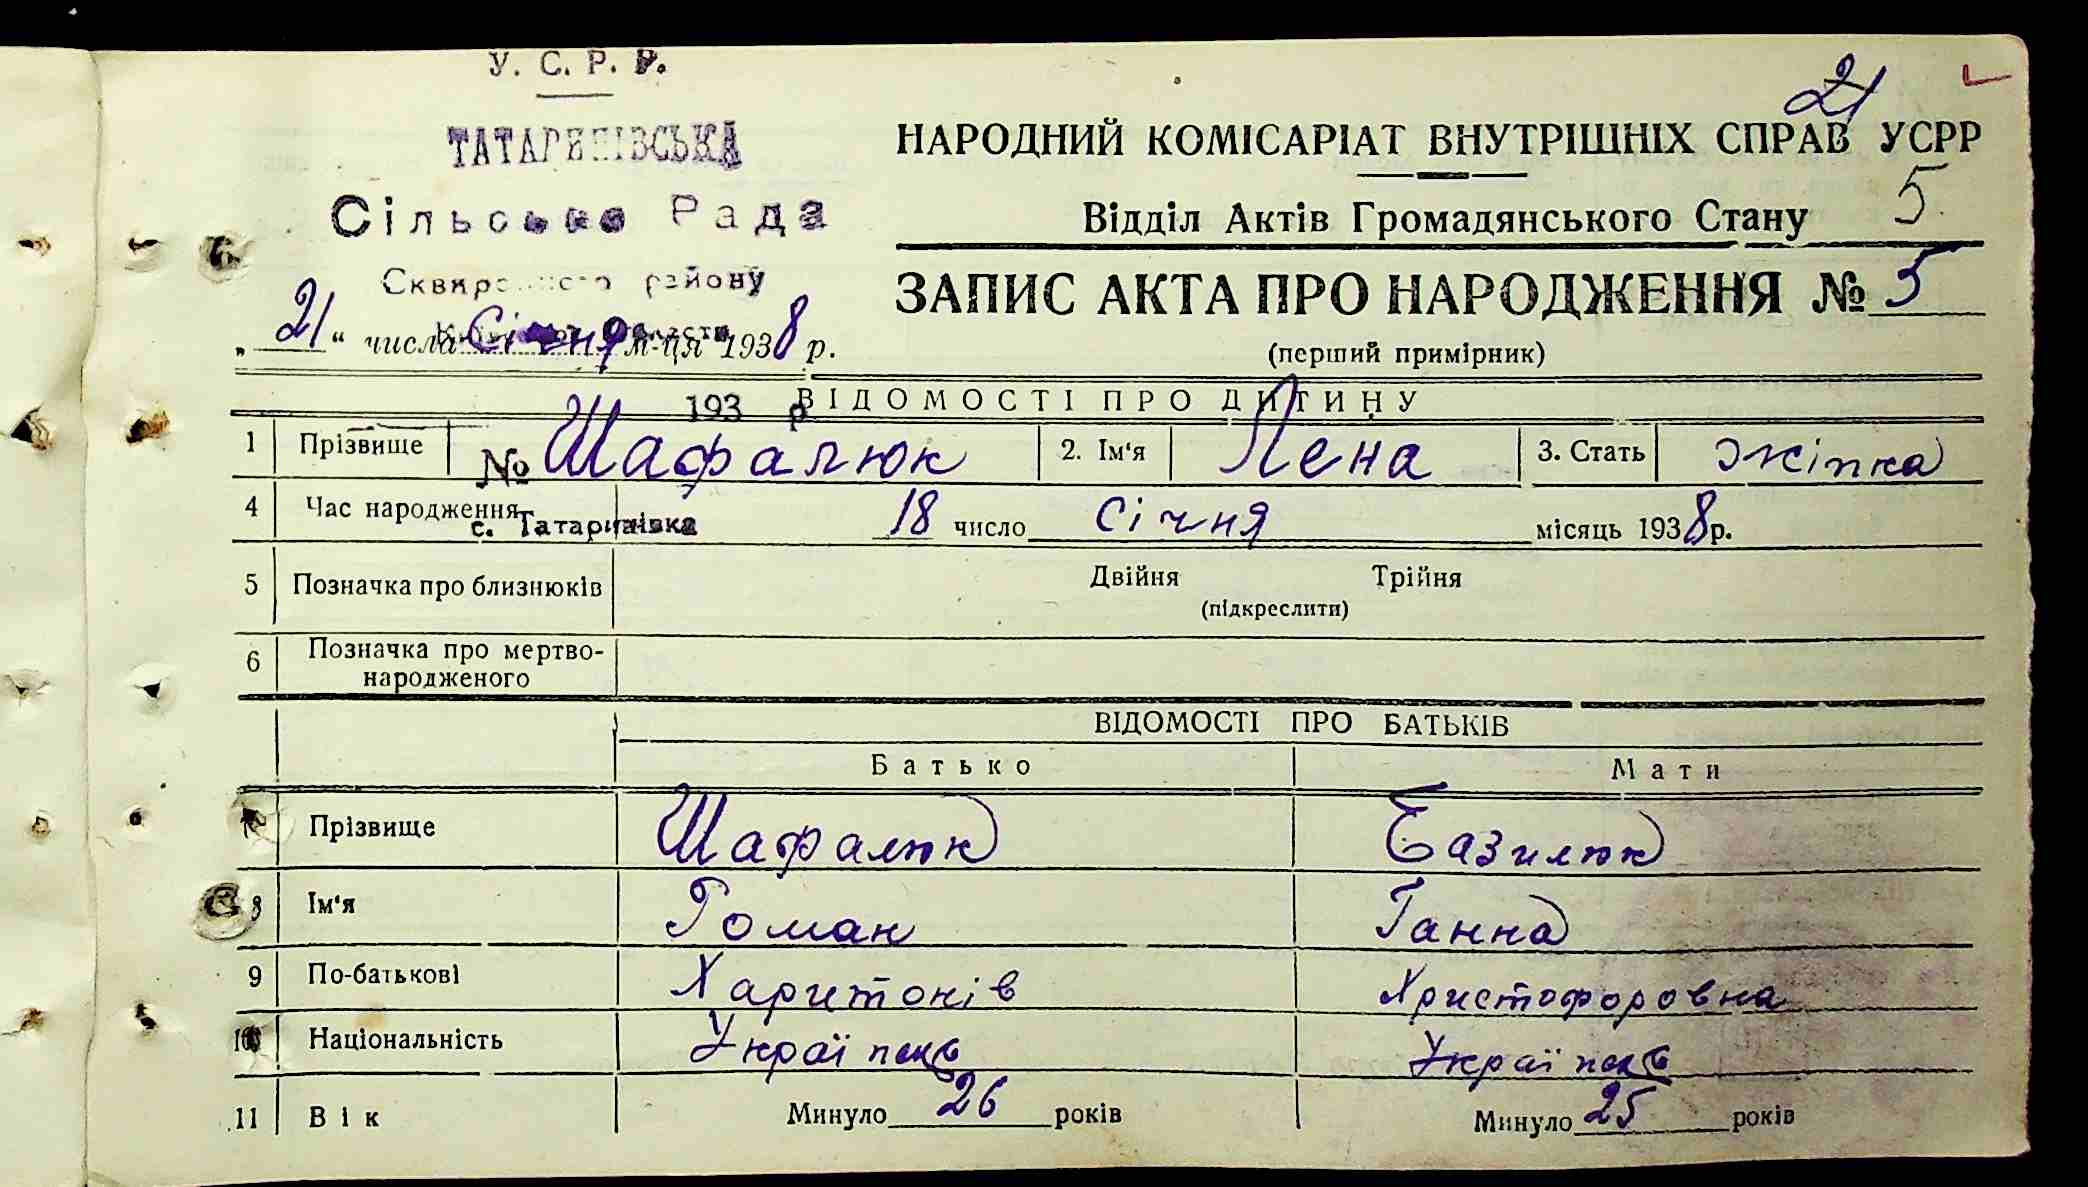 У. С. Р. Р.
ТАТАРИНІВСЬКА
Сільська Рада
Сквирського району
Київської області
193 р
№
с. Татаринівка
21
НАРОДНИЙ КОМІСАРІАТ ВНУТРІШНІХ СПРАВ УСРР
Відділ Актів Громадянського Стану 5
ЗАПИС АКТА ПРО НАРОДЖЕННЯ № 5
(перший примірник)
„21“ числа Січня м-ця 1938 р.
ВІДОМОСТІ ПРО ДИТИНУ
1 Прізвище Шафалюк 2. Ім‘я Лена 3. Стать жінка
4 Час народження 18 число січня місяць 1938 р.
5 Позначка про близнюків Двійня Трійня
(підкреслити)
6 Позначка про мертво-
народженого
ВІДОМОСТІ ПРО БАТЬКІВ
Батько Мати
Прізвище Шафалюк Базилюк
8 Ім‘я Роман Ганна
9 По-батькові Харитонів Христофоровна
10 Національність Україньс Україньс
11 Вік Минуло 26 років Минуло 25 років